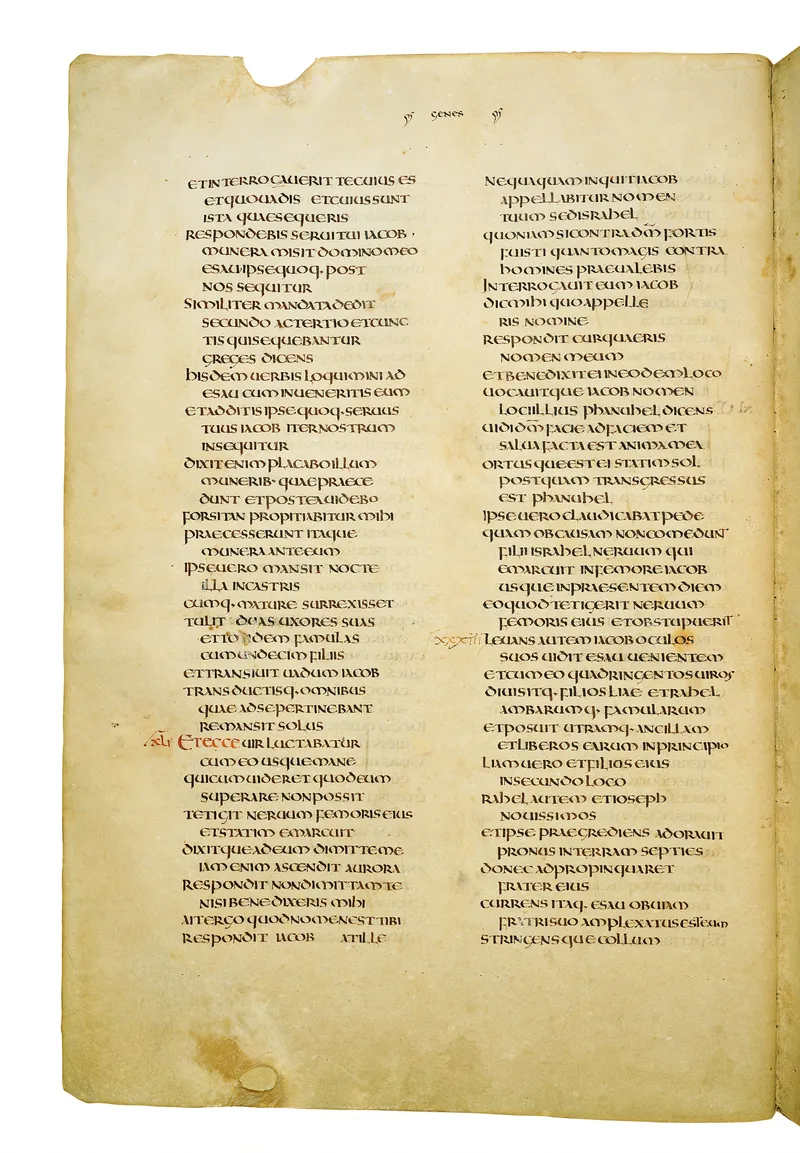 GENES
ETINTERROGAUERIT TECUIUS ES
ETQUOUADIS ETCUIUSSUNT
ISTA QUAESEQUERIS
RESPONDEBIS SERUITUI IACOB ·
MUNERA MISIT DOMINOMEO
ESAUIPSEQUOQ· POST
NOS SEQUITUR
SIMILITER MANDATADEDIT
SECUNDO ACTERTIO ETCUNC
TIS QUISEQUEBANTUR
GREGES DICENS
HISDEM UERBIS LOQUIMINI AD
ESAU CUM INUENERITIS EUM
ETADDITIS IPSEQUOQ· SERUUS
TUUS IACOB ITERNOSTRUM
INSEQUITUR
DIXITENIM PLACABOILLUM
MUNERIB· QUAEPRAECE
DUNT ETPOSTEAUIDEBO
FORSITAN PROPITIABITUR MIHI
PRAECESSERUNT ITAQUE
MUNERA ANTE EUM
IPSEUERO MANSIT NOCTE
ILLA INCASTRIS
CUMQ· MATURE SURREXISSET
TULIT DUAS UXORES SUAS
ETTOTIDEM FAMULAS
CUM UNDECIM FILIIS
ETTRANSIUIT UADUM IACOB
TRANSDUCTISQ· OMNIBUS
QUAE ADSEPERTINEBANT
REMANSIT SOLUS
XLI ETECCE UIR LUCTABATUR
CUM EO USQUEMANE
QUICUMUIDERET QUODEUM
SUPERARE NONPOSSIT
TETIGIT NERUUM FEMORIS EIUS
ETSTATIM EMARCUIT
DIXITQUEADEUM DIMITTEME
IAM ENIM ASCENDIT AURORA
RESPONDIT NONDIMITTAMTE
NISI BENEDIXERIS MIHI
AITERGO QUODNOMENEST TIBI
RESPONDIT IACOB ATILLE
NEQUAQUAM INQUITIACOB
APPELLABITUR NOMEN
TUUM SEDISRAHEL
QUONIAM SICONTRA DM̅ FORTIS
FUISTI QUANTOMAGIS CONTRA
HOMINES PRAEUALEBIS
INTERROGAUIT EUM IACOB
DICMIHI QUOAPPELLE
RIS NOMINE
RESPONDIT CURQUAERIS
NOMEN MEUM
ETBENEDIXIT EI INEODEM LOCO
UOCAUITQUE IACOB NOMEN
LOCIILLIUS PHANUHEL DICENS
UIDI DM̅ FACIE ADFACIEM ET
SALUA FACTA EST ANIMA MEA
ORTUS QUE EST EI STATIM SOL
POSTQUAM TRANSGRESSUS
EST PHANUHEL
IPSE UERO CLAUDICABAT PEDE
QUAM OBCAUSAM NONCOMEDUNT
FILII ISRAHEL NERUUM QUI
EMARCUIT INFEMORE IACOB
USQUE INPRAESENTEM DIEM
EOQUOD TETIGERIT NERUUM
FEMORIS EIUS ETOBSTUPUERIT
XXXIII LEUANS AUTEM IACOB OCULOS
SUOS UIDIT ESAU UENIENTEM
ETCUM EO QUADRINGENTOS UIROS
DIUISITQ· FILIOS LIAE ETRAHEL
AMBARUMQ· FAMULARUM
ETPOSUIT UTRAMQ· ANCILLAM
ETLIBEROS EARUM INPRINCIPIO
LIAM UERO ETFILIOS EIUS
INSECUNDO LOCO
RAHEL AUTEM ETIOSEPH
NOUISSIMOS
ETIPSE PRAEGREDIENS ADORAUIT
PRONUS INTERRAM SEPTIES
DONEC ADPROPINQUARET
FRATER EIUS
CURRENS ITAQ· ESAU OBUIAM
FRATRISUO AMPLEXATUS EST EUM
STRINGENS QUE COLLUM